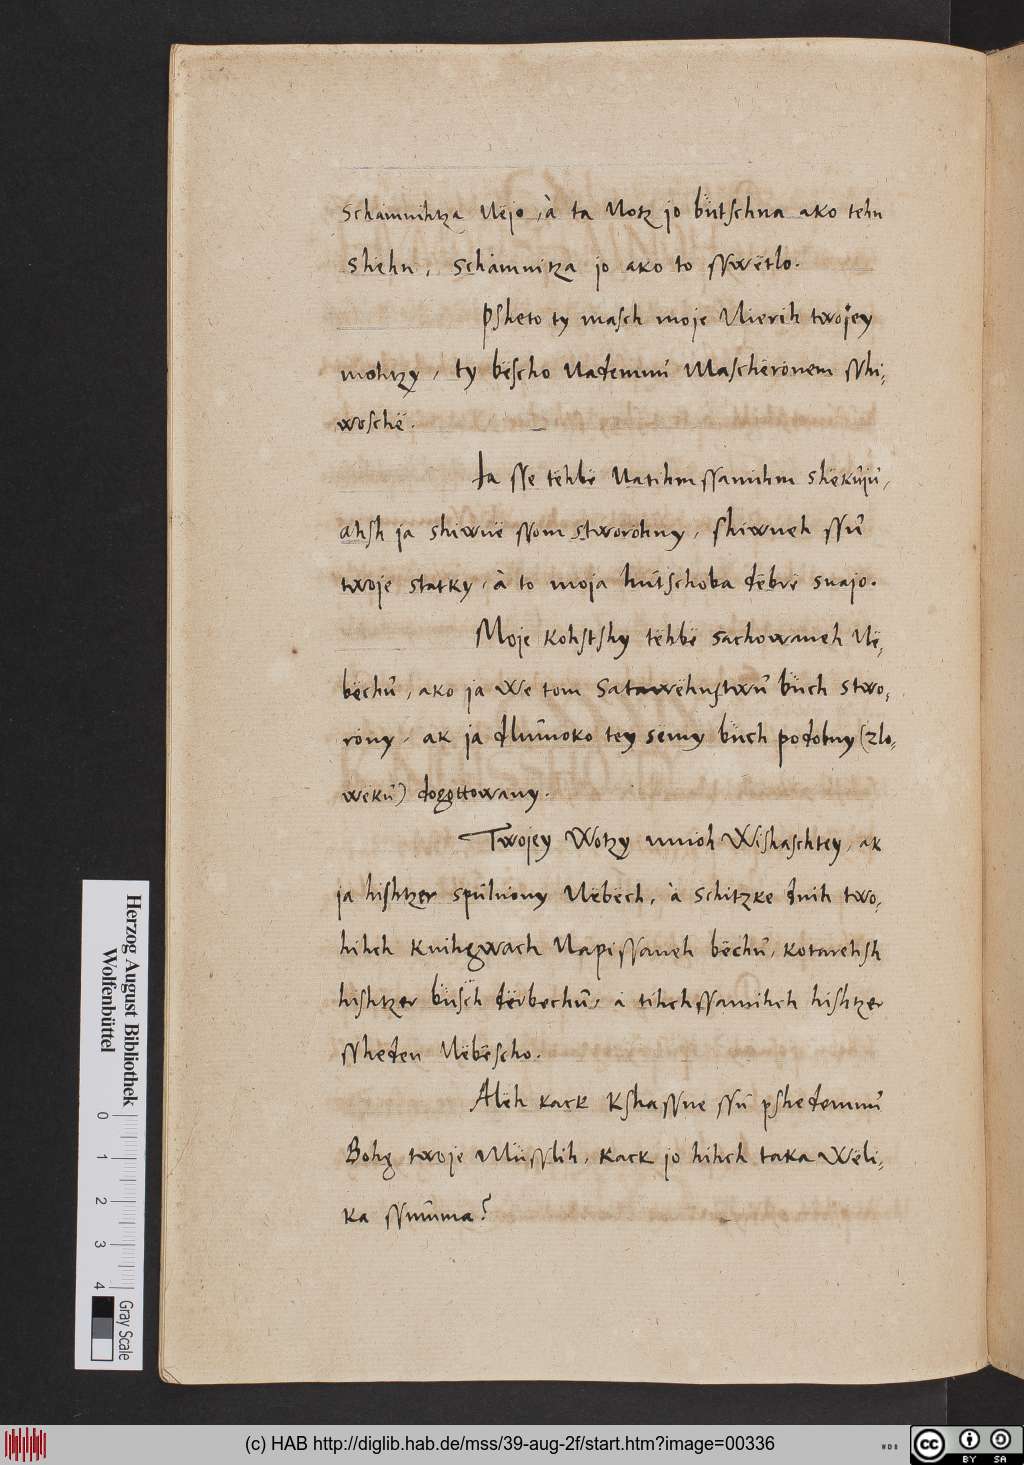 schamnihtza Nëjo, à ta Notz jo bütschna ako tehn
shëhn, schamnitza jo ako to sswëtlo.
Psheto ty masch moje Nierih twojey
mohtzy, ty bëscho Nademmú Mascherönem sshi-
woschë.
Ja sse tëhbë Natihmssamihm shëkújú,
ahsh ja shiwnë ssom stworohny, shiwneh ssú
twoje statky, à to moja hútschoba dëbrë snajo.
Moje kohstshy tëhbë sachowaneh Në-
bëchú, ako ja We tom Satawëhnstwú büch stwo-
röny, ak ja dlúmoko tey sëmy büch podobny (zlo-
wëkú) dogottowany.
Twojey Wotzy mnoh Wishaschtey, ak
ja hishtzer spúlniony Nëbëch, à schitzke dnih two-
hihch knihgwach Napissaneh bëchú, kotarehsh
hishtzer büsch dërbechú, à tihchssamihch hishtzer
ssheden Nëbëscho.
Alëh kack Kshassne ssú pshedemmú
Bohg twoje Müsslih, kack jo hihch taka Wëli-
ka ssumma?
Herzog August Bibliothek
Wolfenbüttel
0 1 2 3 4
Gray Scale
(c) HAB http://diglib.hab.de/mss/39-aug-2f/start.htm?image=00336
WDB
cc BY SA